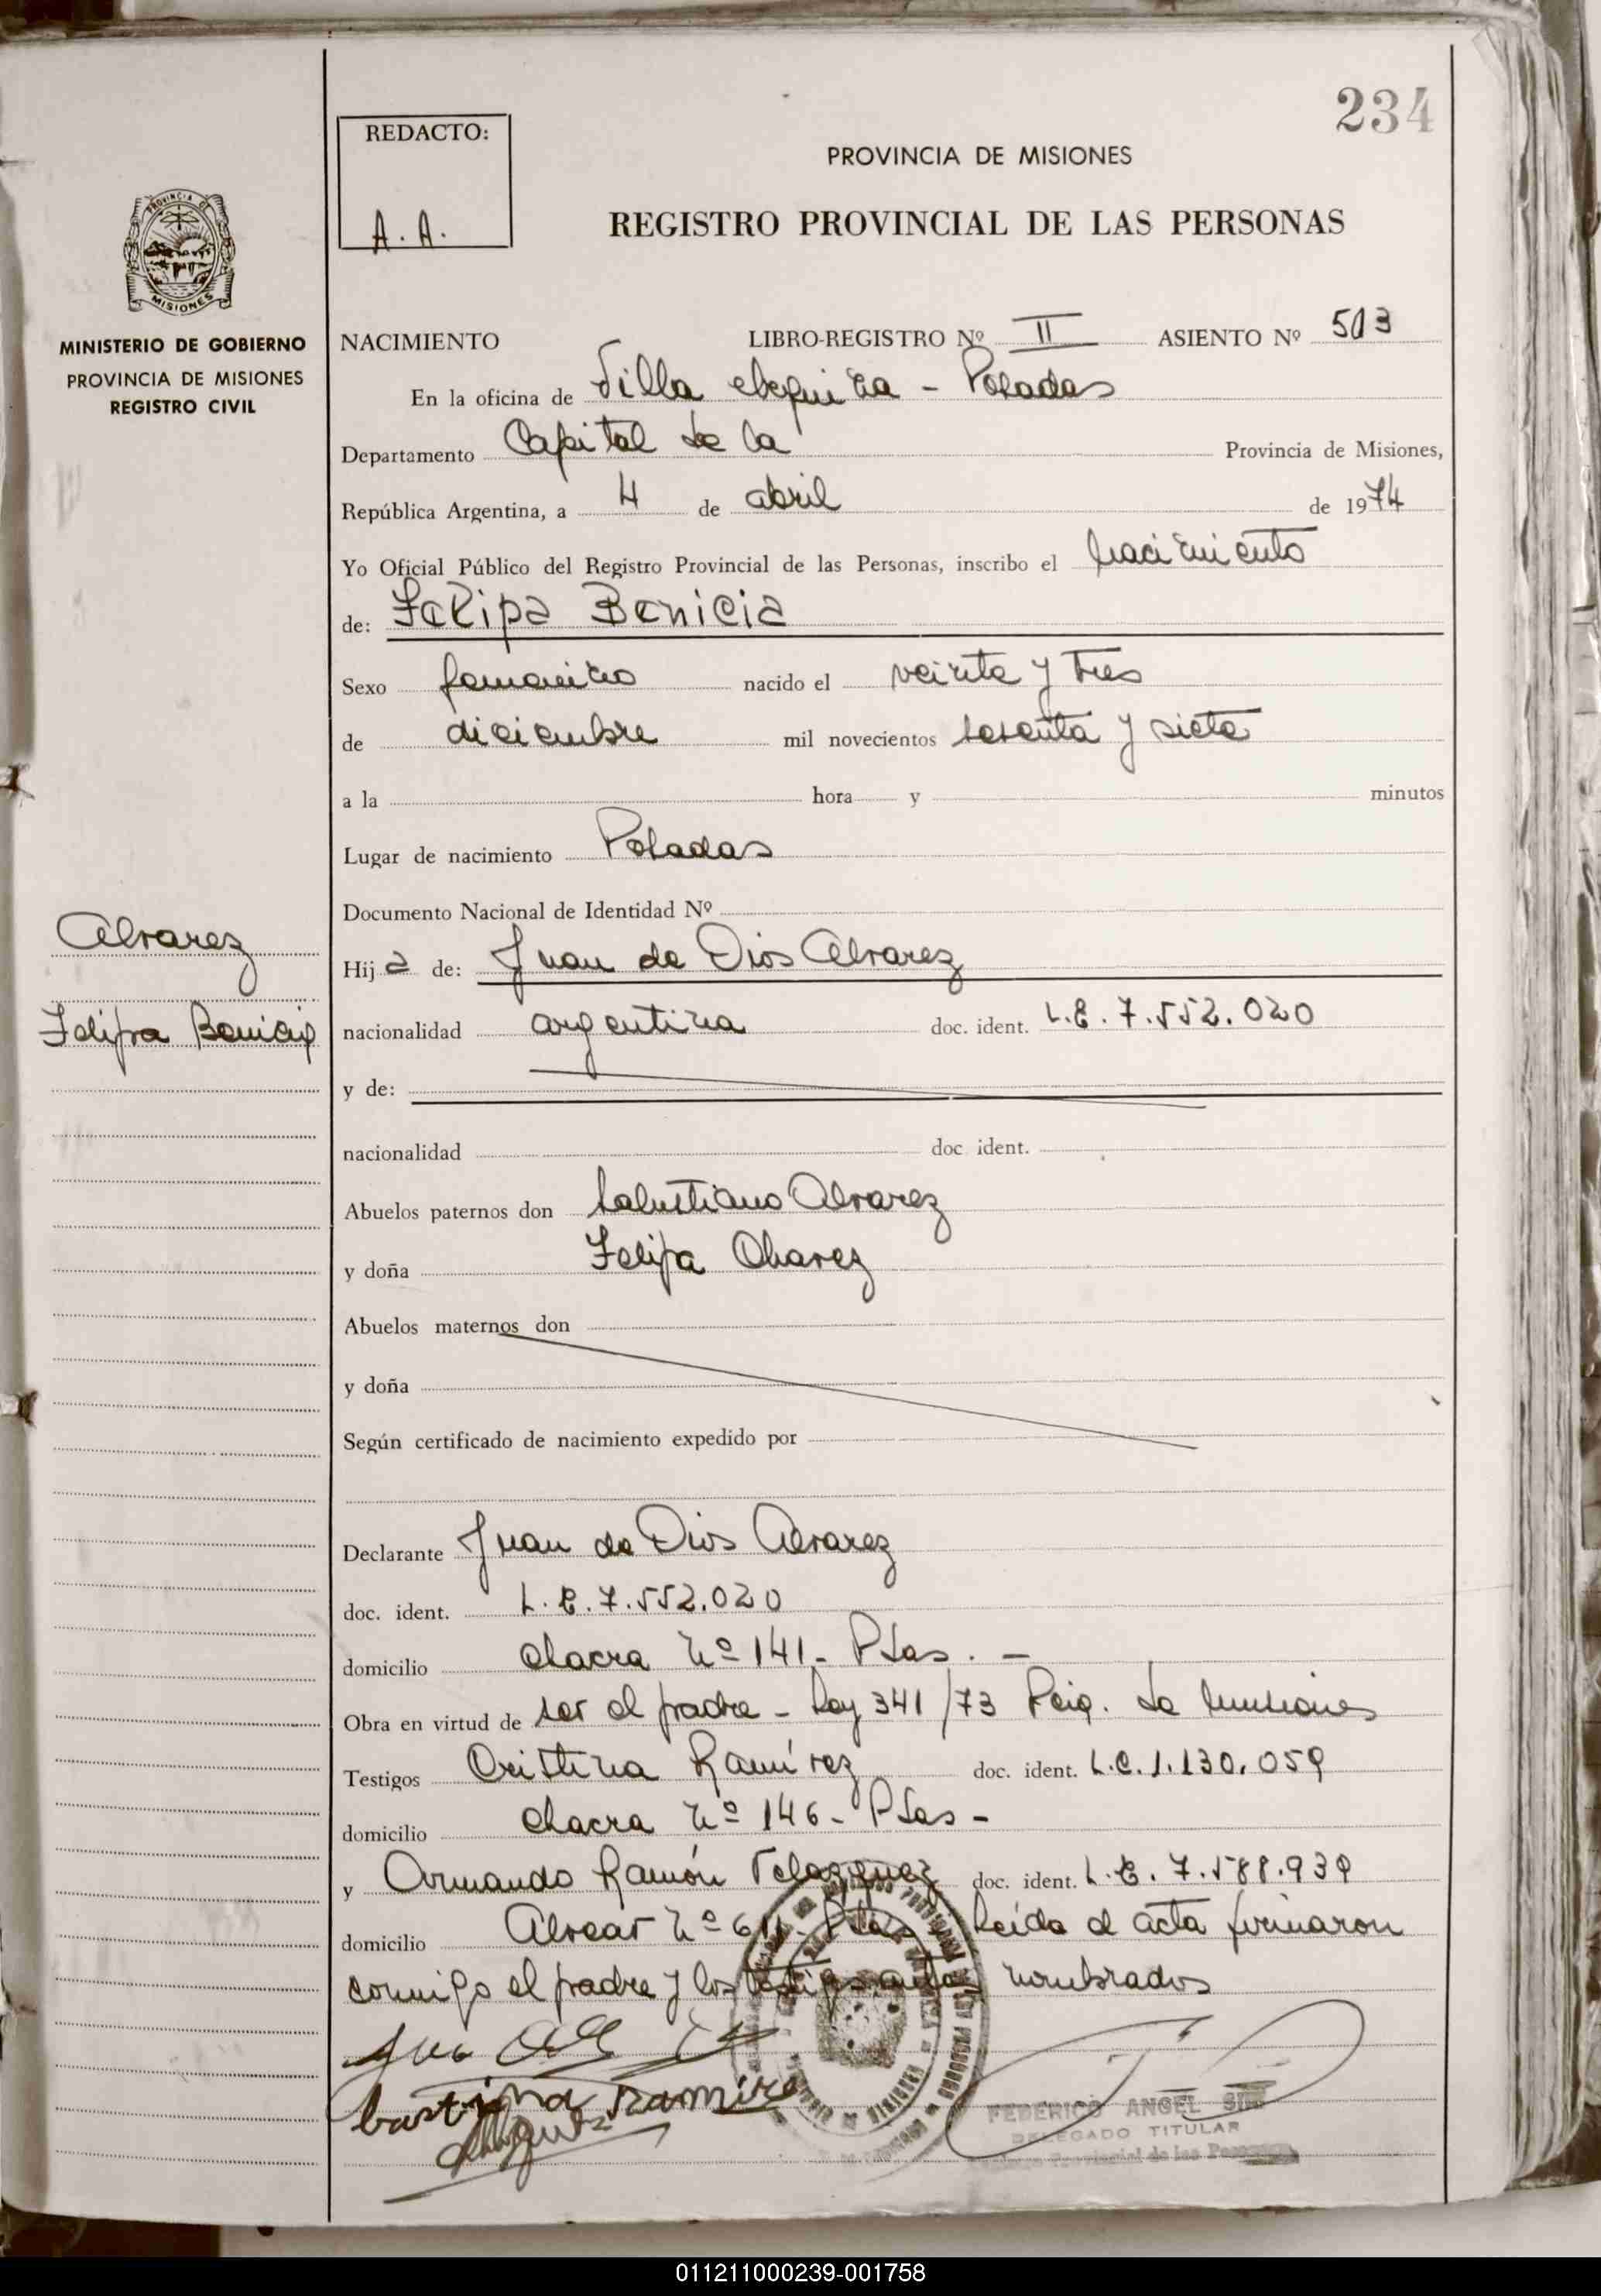 234
REDACTO:
A. A.
PROVINCIA DE MISIONES
REGISTRO PROVINCIAL DE LAS PERSONAS
PROVINCIA DE
MISIONES
MINISTERIO DE GOBIERNO
PROVINCIA DE MISIONES
REGISTRO CIVIL
NACIMIENTO LIBRO-REGISTRO Nº II ASIENTO Nº 503
En la oficina de Villa - Posadas
Departamento Capital de la Provincia de Misiones,
República Argentina, a 4 de abril de 1974
Yo Oficial Público del Registro Provincial de las Personas, inscribo el nacimiento
de: Felipa Benicia
Sexo femenino nacido el veinte y tres
de diciembre mil novecientos sesenta y siete
a la hora y minutos
Lugar de nacimiento Posadas
Documento Nacional de Identidad Nº
Alvarez
Hija de: Juan de Dios Alvarez
Felipa Benicia
nacionalidad argentina doc. ident. L.E. 7.552.020
y de:
nacionalidad doc ident.
Abuelos paternos don Salustiano Alvarez
y doña Felipa Chavez
Abuelos maternos don
y doña
Según certificado de nacimiento expedido por
Declarante Juan de Dios Alvarez
doc. ident. L.E. 7.552.020
domicilio chacra Nº 141- Psas. -
Obra en virtud de ser el padre - Ley 341/73 Reig. de
Testigos Cristina Ramírez doc. ident. L.C. 1.130.059
domicilio chacra Nº 146- Psas-
y Armando Ramón Velazquez doc. ident. L.E. 7.588.939
domicilio Alvear Nº Leída el acta firmaron
conmigo el padre y los testigos antes nombrados
Ramire
FEDERICO ANGEL
DELEGADO TITULAR
Provincial de las Personas
011211000239-001758